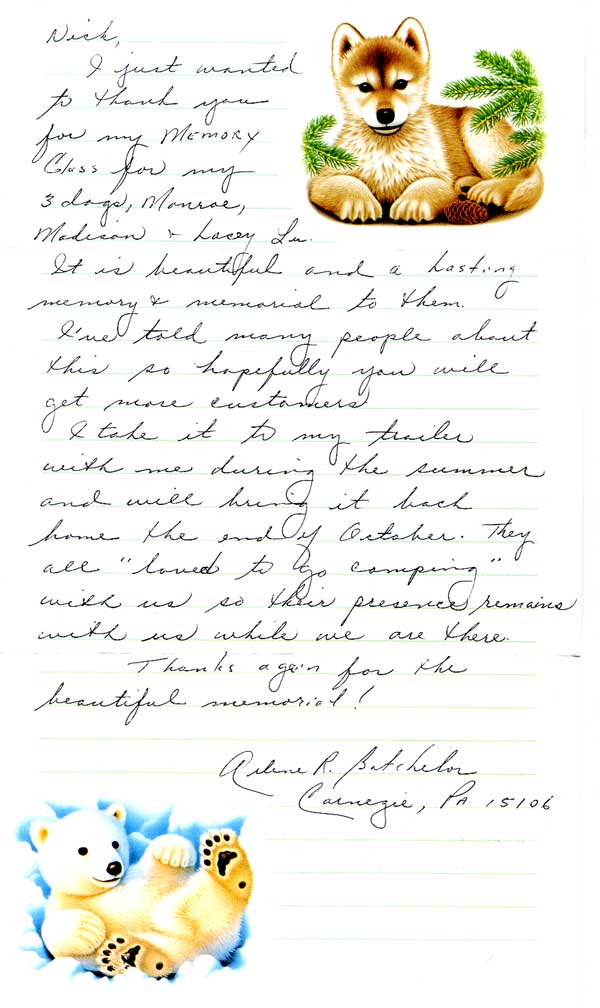 Nick,
I just wanted
to thank you
for my MEMORY
Glass for my
3 dogs, Monroe,
Madison & Lacey Lu.
It is beautiful and a lasting
memory & memorial to them.
I've told many people about
this so hopefully you will
get more customers
I take it to my trailer
with me during the summer
and will bring it back
home the end of October. They
all "loved to go camping"
with us so their presence remains
with us while we are there.
Thanks again for the
beautiful memorial!
Arlene R. Batchelor
Carnegie, PA 15106